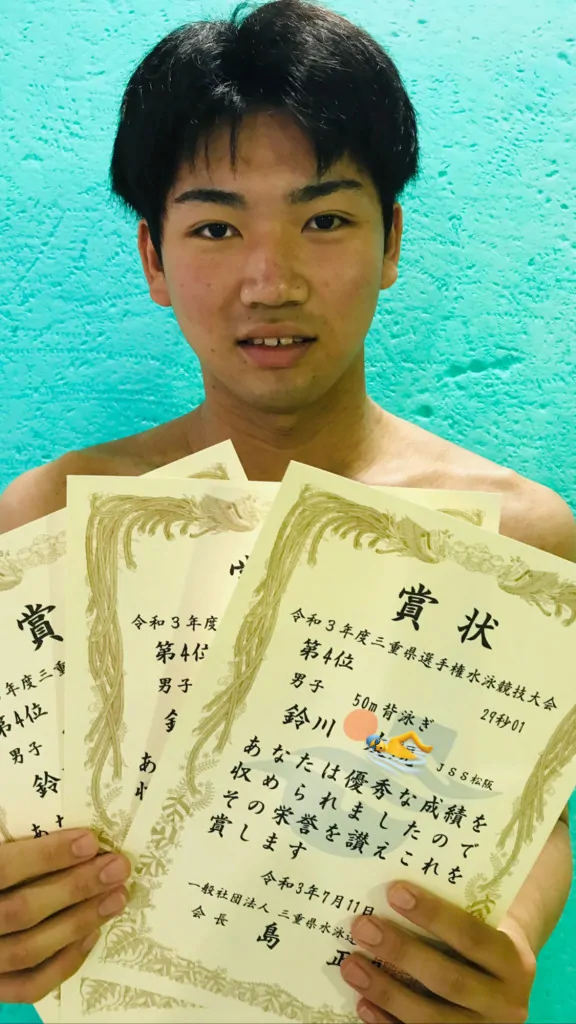 賞
年度三重
第4位
男子
鈴
あ
令和3年度
第4位
男子
あ
収
賞状
令和3年度三重県選手権水泳競技大会
第4位
男子 50m背泳ぎ 29秒01
鈴川 JSS松阪
あなたは優秀な成績を
収められましたので
その栄誉を讃えこれを
賞します
令和3年7月11日
一般社団法人 三重県水泳連
会長 島 正